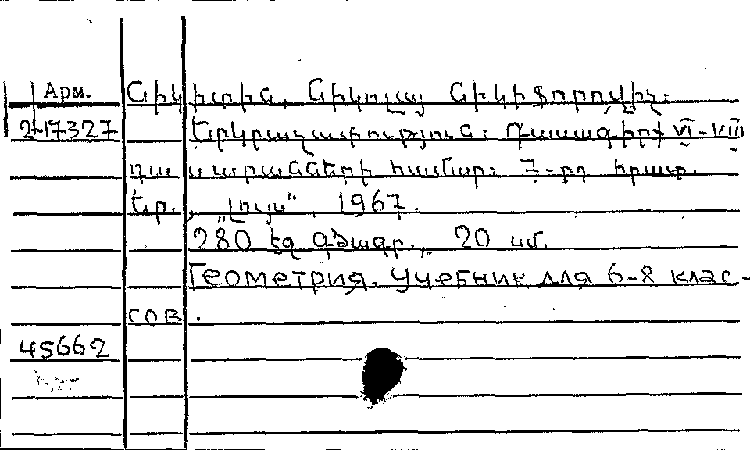 Арм. Նիկիտին, Նիկոլայ Նիկիֆորովիչ:
2-17327 Երկրաչափություն: Դասագիրք VI-VIII
դասարանների համար: 7-րդ հրատ.
Եր., „Լույս", 1967.
280 էջ գծագր., 20 սմ.
Геометрия. Учебник для 6-8 клас-
сов.
45662